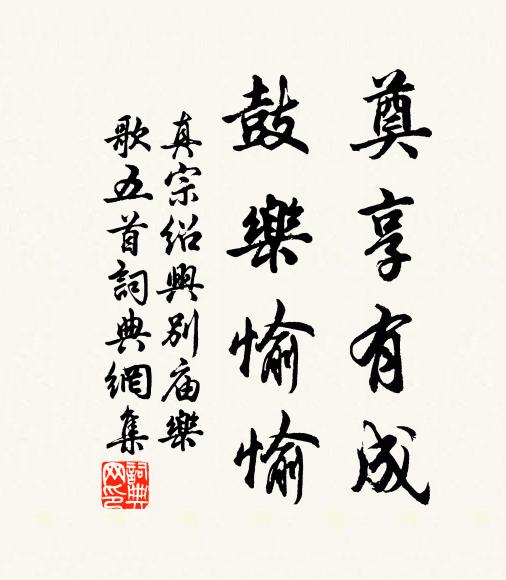 奠享有成
鼓樂愉愉
真宗紹興別庙樂
歌五首詞典網集
詞典网印